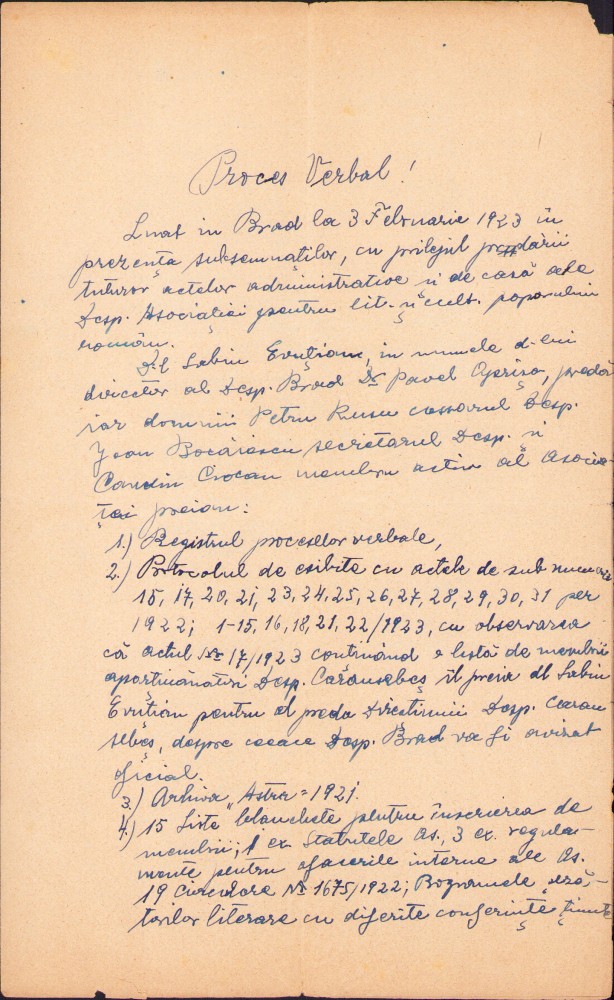 Proces Verbal!
Luat in Brad la 3 Februarie 1923 în
prezenta subsemnatilor, cu prilejul predării
tuturor actelor administrative și de casă ale
Desp. Asociatiei pentru lit. și cult. poporului
român.
D-l Sabin Evuțian, in numele d-lui
director al Desp. Brad Dr Pavel Oprișa, predă
iar domnii Petru Rusu cassarul Desp.
Ioan Bocăiescu secretarul Desp. si
Candin Ciocan membru activ al Asocia-
ției preiau:
1.) Registrul proceselor verbale,
2.) Protocolul de exibite cu actele de sub numerii
15, 17, 20, 21, 23, 24, 25, 26, 27, 28, 29, 30, 31 per
1922; 1-15, 16, 18, 21, 22/1923, cu observarea
că actul Nr 17/1923 continând o listă de membrii
aparținănatori Desp. Caransebeș îl preia dl Sabin
Evuțian pentru al preda Directiunii Desp. Caran-
sebeș, despre ceeace Desp. Brad va fi avizat
oficial.
3.) Arhiva "Astra" 1921.
4.) 15 Liste blanchete pentru înscrierea de
membrii; 1 ex. Statutele As., 3 ex. regula-
mente pentru afacerile interne ale As.
19 Circulare Nr 1675/1922; Programele șeză-
torilor literare cu diferite conferințe ținute